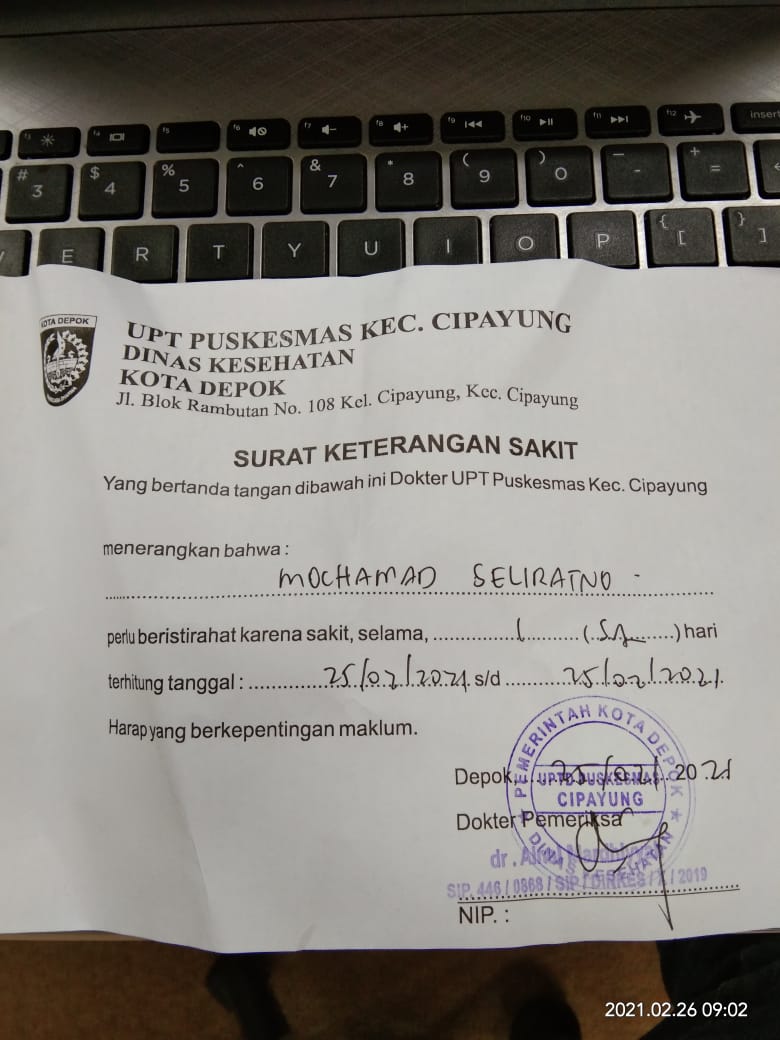 f3 f4 f5 f6 f7 f8 f9 f10 f11 f12 insert
# 3 $ 4 % 5 ^ 6 & 7 * 8 ( 9 ) 0 _ - + =
E R T Y U I O P { [ } ]
KOTA DEPOK
UPT PUSKESMAS KEC. CIPAYUNG
DINAS KESEHATAN
KOTA DEPOK
Jl. Blok Rambutan No. 108 Kel. Cipayung, Kec. Cipayung
SURAT KETERANGAN SAKIT
Yang bertanda tangan dibawah ini Dokter UPT Puskesmas Kec. Cipayung
menerangkan bahwa :
MOCHAMAD SELIRATNO -
perlu beristirahat karena sakit, selama, 1 ( ) hari
terhitung tanggal : 25/02/2021 s/d 25/02/2021.
Harap yang berkepentingan maklum.
PEMERINTAH KOTA DEPOK
Depok, 25/02/ 2021
UPTD PUSKESMAS
CIPAYUNG
Dokter Pemeriksa
DINAS KESEHATAN
dr.
SIP. 446 / 0868 / SIP / DINKES / X / 2019
NIP. :
2021.02.26 09:02